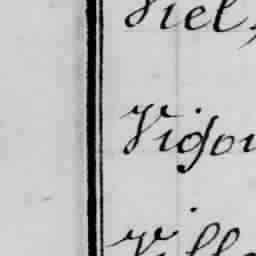 Viel,
Vigou
Ville